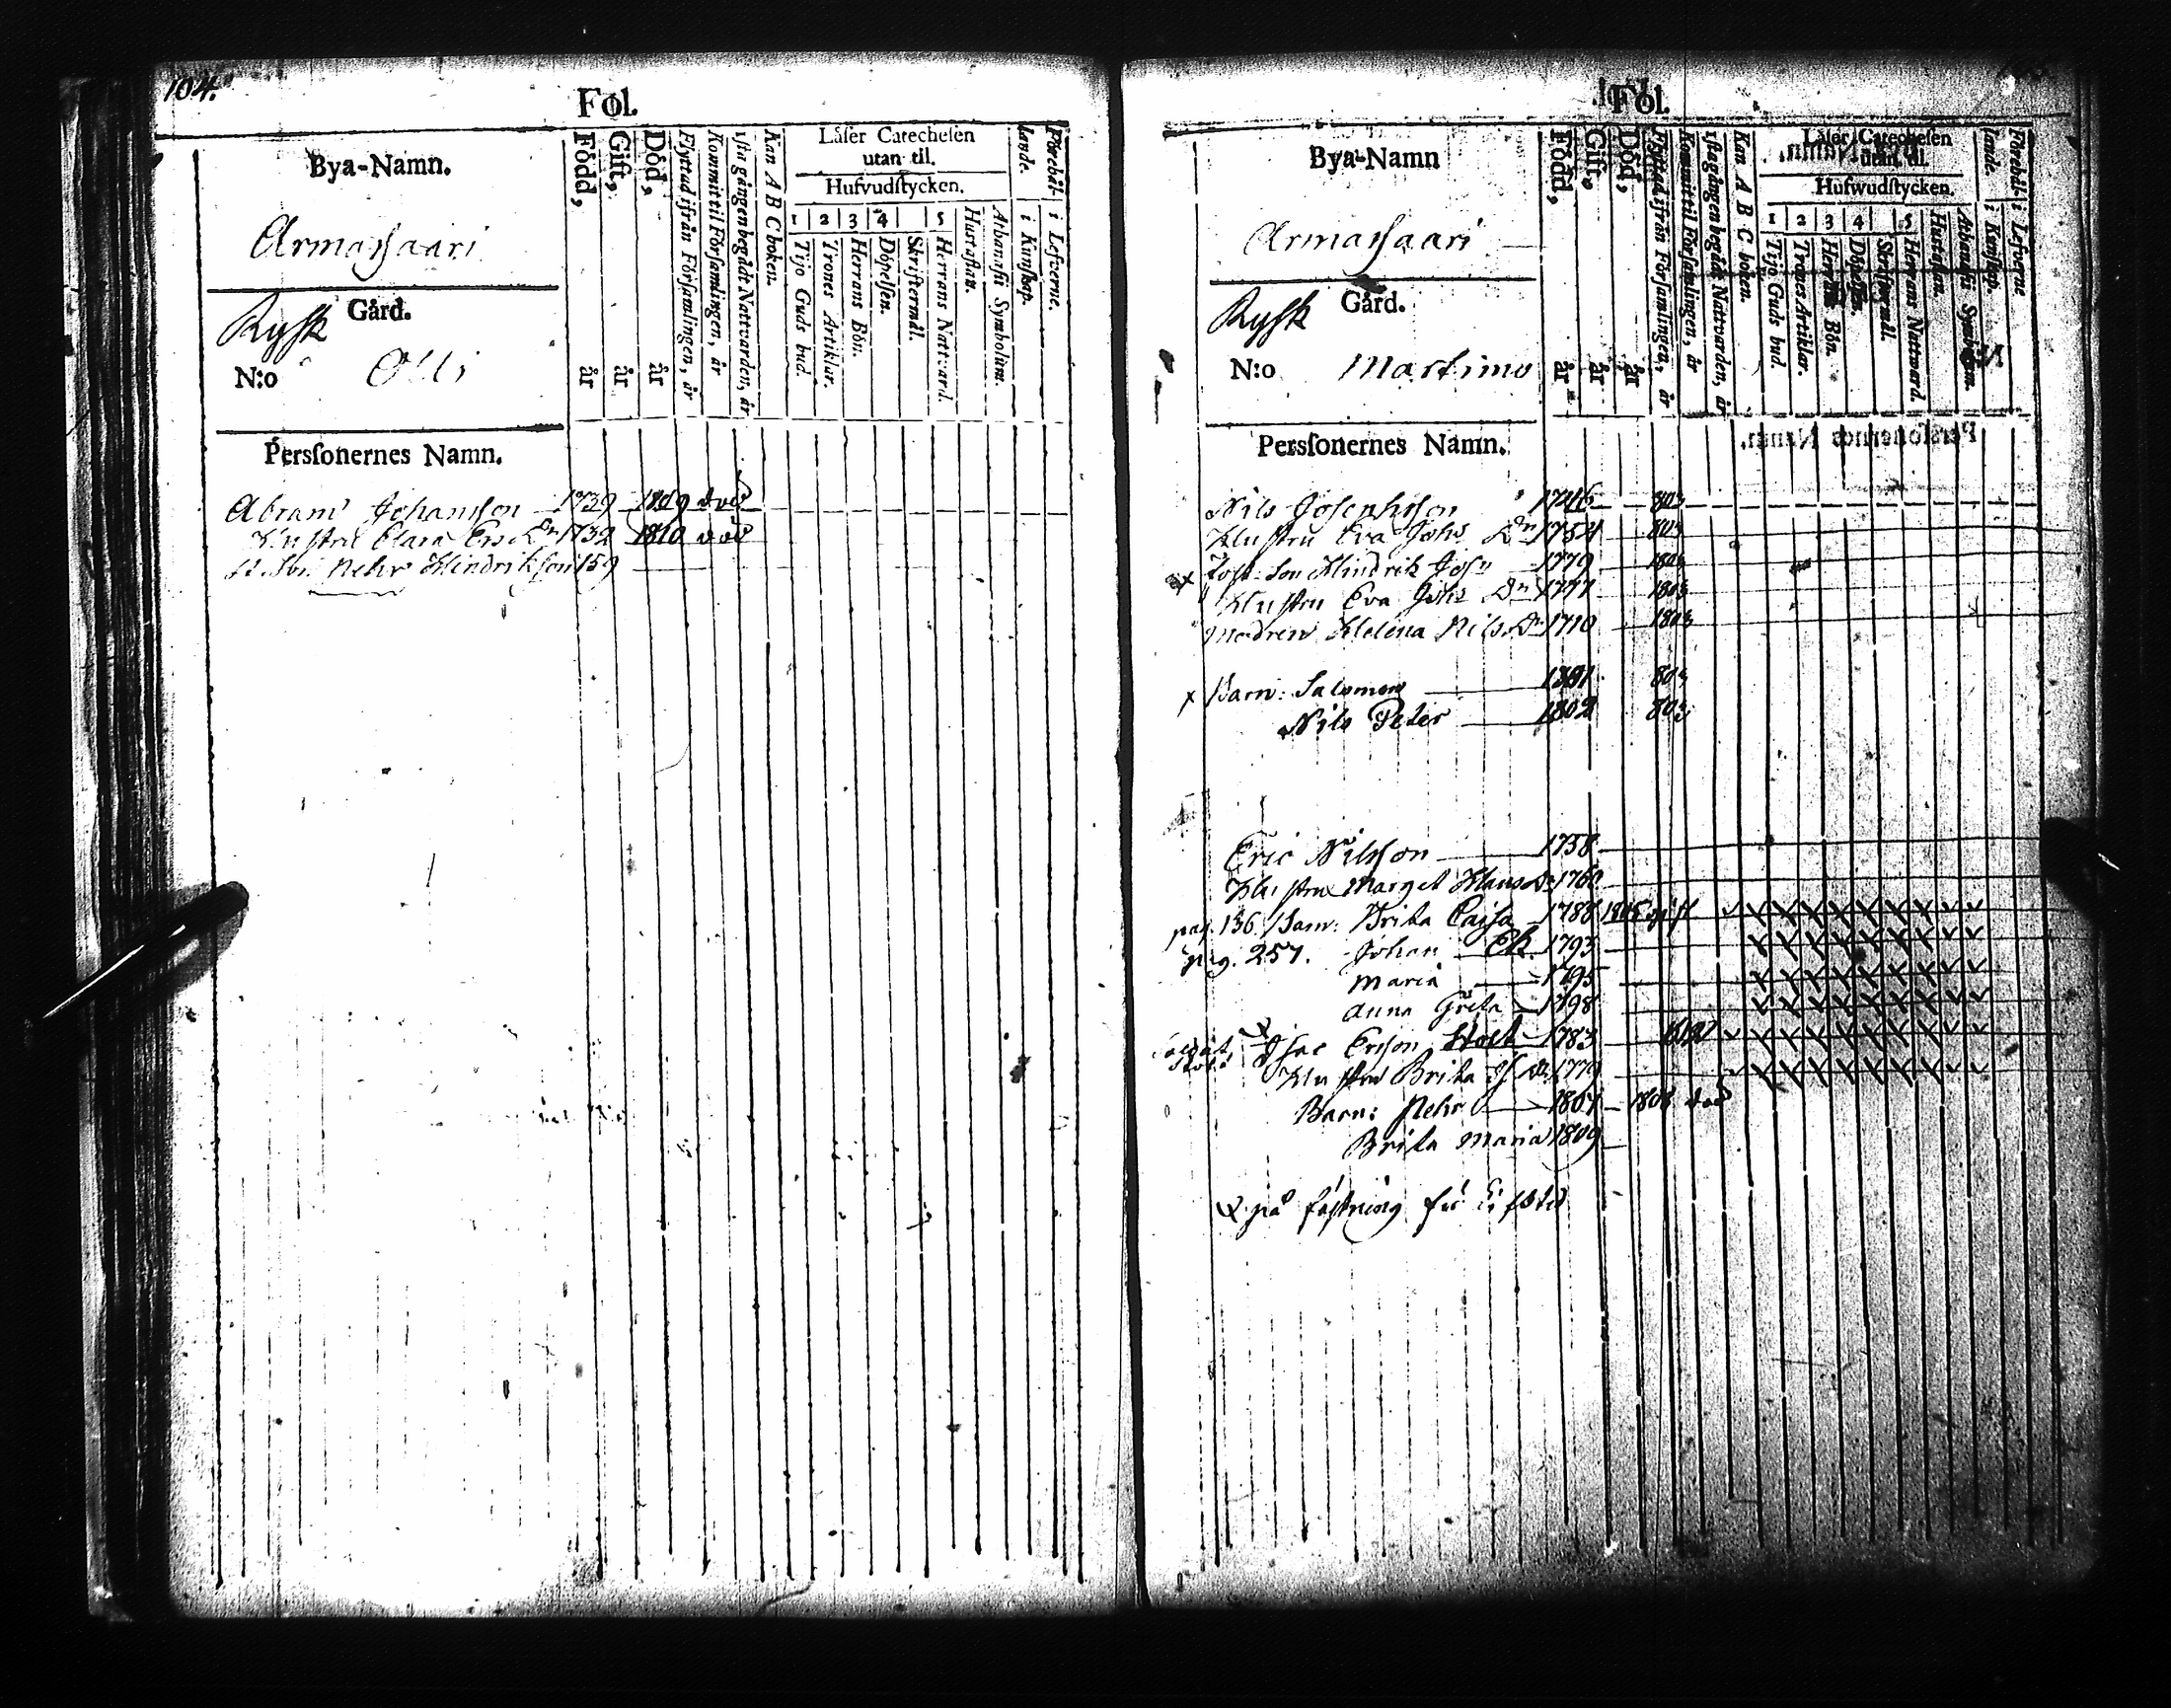 104.
Fol.
Bya-Namn.
Armassaari
Gård.
Rysk
N:o Olli
Född, år
Gift, år
Död, år
Flyttad ifrån Församlingen, år
Kommit til Församlingen, år
1sta gången begådt Nattvarden, år
Kan A B C boken.
Läser Catechesen
utan til.
Hufvudstycken.
1 2 3 4 5
Tijo Guds bud.
Trones Artiklar.
Herrans Bön.
Döpelsen.
Skriftermål.
Herrans Nattvard.
Hustaflan.
Athanasii Symbolum.
Förehållande.
i Kunskap.
i Lefverne.
Perssonernes Namn.
Abram Johansson 1739 1809 död
Hustru Clara Ers Dr 1732 1810 död
Pehr Hindriksson 159
Fol.
Bya-Namn
Armassaari
Gård.
Rysk
N:o Martimo
Född, år
Gift, år
Död, år
Flyttad ifrån Församlingen, år
Kommit til Församlingen, år
1sta gången begådt Nattvarden, år
Kan A B C boken.
Läser Catechesen
utan til.
Hufwudstycken.
1 2 3 4 5
Tijo Guds bud.
Trones Artiklar.
Herrans Bön.
Döpelsen.
Skriftermål.
Herrans Nattvard.
Hustaflan.
Athanasii Symbolum.
Förehållande.
i Kunskap.
i Lefverne
Perssonernes Namn.
Nils Josephsson 1746 803
Hustru Eva Johs Dr 1754 803
Son Hindrik 1779 1803
Hustru Eva Johs Dr 1777 1803
Modren Helena Nils Dr 1710 1803
x Barn: Salomon 1801 803
Nils Peter 1802 803
Eric Nilsson 1758
Hustru Marget Hans Dr 1760
pag. 136 Barn: Brita Cajsa 1788 gift
pag. 257. Johan Ek 1793
Maria 1795
Anna Greta 1798
Isac Erson Stolt 1783
Hustru Brita Dr 1779
Barn: Pehr 1807 1808 död
Brita Maria 1809
på fästning för